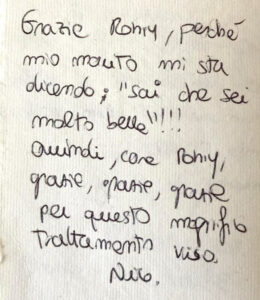 Grazie Romy, perché
mio marito mi sta
dicendo; "sai che sei
molto bella"!!!
Quindi, cara Romy,
grazie, grazie, grazie
per questo magnifico
trattamento viso.
Nico.